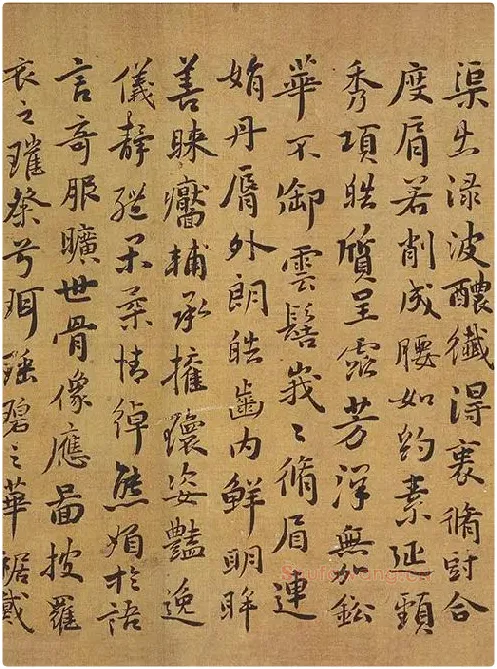 渠出渌波醲纖得衷脩短合
度肩若削成腰如約素延頸
秀項皓質呈露芳澤無加鉛
華不御雲髻峩〻脩眉連
娟丹脣外朗皓齒内鮮明眸
善睞靨輔承權瓌姿豔逸
儀靜體閑柔情綽態媚於語
言奇服曠世骨像應圖披羅
衣之璀粲兮珥瑤碧之華琚戴